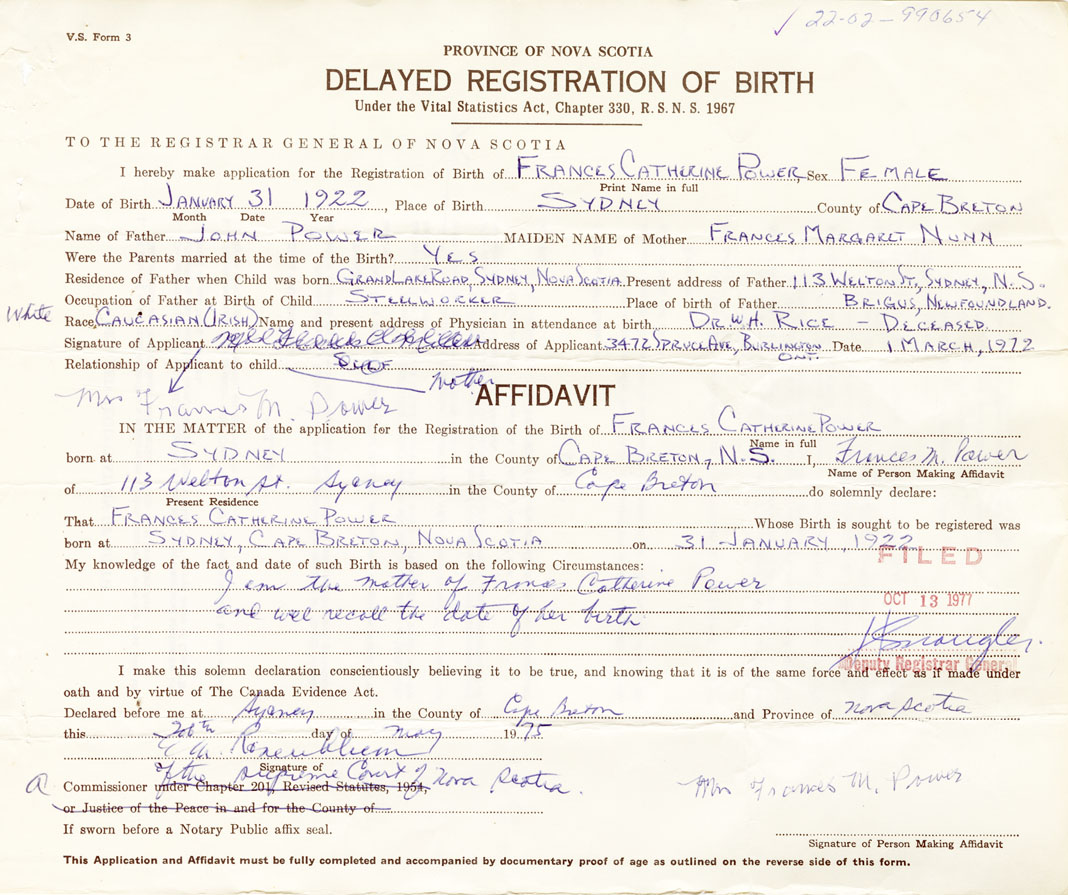 22-02-990654
V.S. Form 3
PROVINCE OF NOVA SCOTIA
DELAYED REGISTRATION OF BIRTH
Under the Vital Statistics Act, Chapter 330, R.S.N.S. 1967
TO THE REGISTRAR GENERAL OF NOVA SCOTIA
I hereby make application for the Registration of Birth of FRANCES CATHERINE POWER, Sex FEMALE
Print Name in full
Date of Birth JANUARY 31 1922, Place of Birth SYDNEY County of CAPE BRETON
Month Date Year
Name of Father JOHN POWER MAIDEN NAME of Mother FRANCES MARGARET NUNN
Were the Parents married at the time of the Birth? YES
Residence of Father when Child was born GRAND LAKE ROAD, SYDNEY, NOVA SCOTIA Present address of Father 113 WELTON ST, SYDNEY, N.S.
Occupation of Father at Birth of Child STEELWORKER Place of birth of Father BRIGUS, NEWFOUNDLAND.
White Race CAUCASIAN (IRISH) Name and present address of Physician in attendance at birth DR W.H. RICE - DECEASED
Signature of Applicant Address of Applicant 3472 SPRUCE AVE, BURLINGTON ONT. Date 1 MARCH, 1972
Relationship of Applicant to child SELF Mother
Mrs Frances M. Power
AFFIDAVIT
IN THE MATTER of the application for the Registration of the Birth of FRANCES CATHERINE POWER
Name in full
born at SYDNEY in the County of CAPE BRETON, N.S. I, Frances M. Power
Name of Person Making Affidavit
of 113 Welton St. Sydney in the County of Cape Breton do solemnly declare:
Present Residence
That FRANCES CATHERINE POWER Whose Birth is sought to be registered was
born at SYDNEY, CAPE BRETON, NOVA SCOTIA on 31 JANUARY, 1922
FILED
My knowledge of the fact and date of such Birth is based on the following Circumstances:
I am the mother of Frances Catherine Power
OCT 13 1977
and well recall the date of her birth
Deputy Registrar General
I make this solemn declaration conscientiously believing it to be true, and knowing that it is of the same force and effect as if made under
oath and by virtue of The Canada Evidence Act.
Declared before me at Sydney in the County of Cape Breton and Province of Nova Scotia
this 20th day of May 1975
Signature of
of the Supreme Court of Nova Scotia.
a Commissioner under Chapter 201, Revised Statutes, 1954,
or Justice of the Peace in and for the County of
Mrs Frances M. Power
If sworn before a Notary Public affix seal.
Signature of Person Making Affidavit
This Application and Affidavit must be fully completed and accompanied by documentary proof of age as outlined on the reverse side of this form.